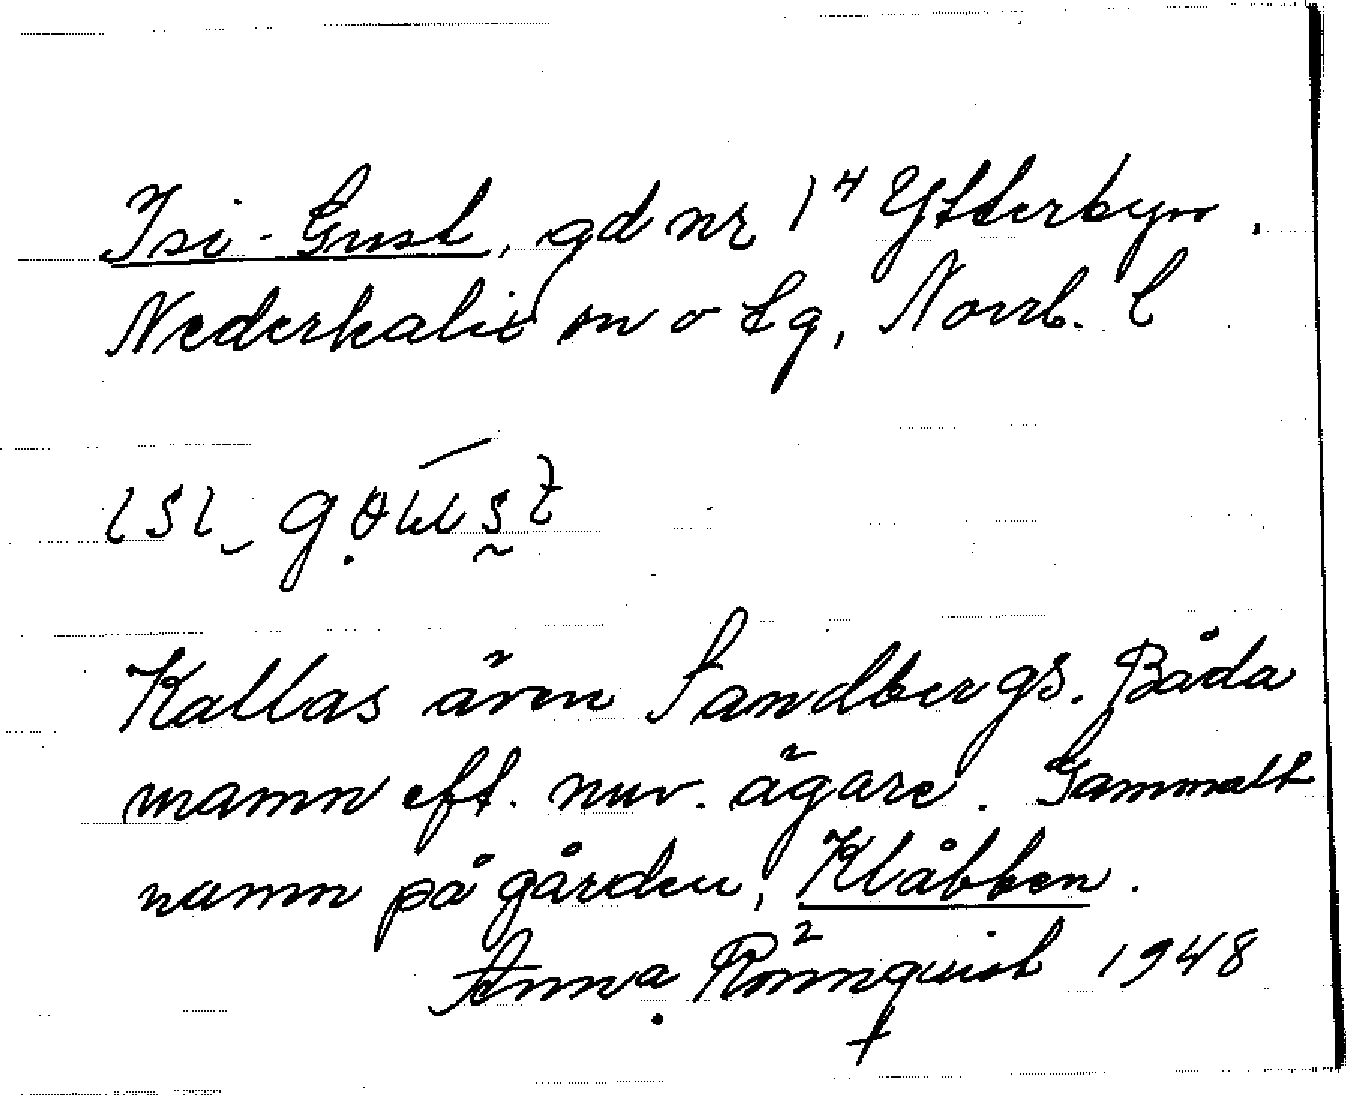 Isi-Gust, gd nr 1⁴ Ytterbyn.
Nederkalix sn o tg, Norrb. l
Kallas även Sandbergs. Båda
namn eft. nuv. ägare. Gammalt
namn på gården, Klåbben.
Anna Rönnquist 1948